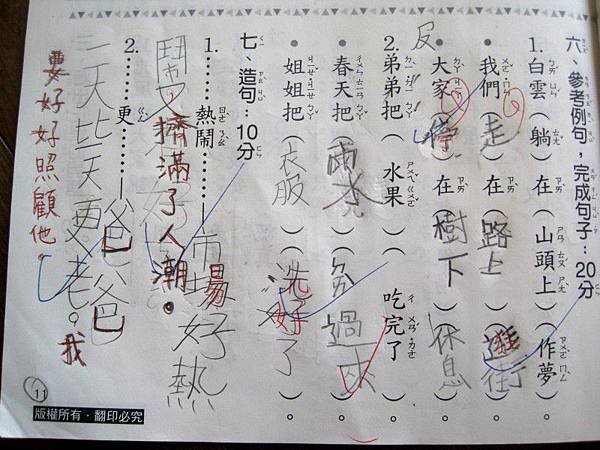 六、參考例句，完成句子：20分
1.白雲（躺）在（山頭上）（作夢）。
・我們（走）在（路上）（逛街）。
・大家（停）在（樹下）（休息）。
反
2.弟弟把（水果）（吃完了）。
・春天把（雨水）（分過來）。
・姐姐把（衣服）（洗好了）。
七、造句：10分
1.熱鬧……市場好熱
鬧又擠滿了人潮。
2.更……爸爸
一天比一天更老。我
要好好照顧他。
11
版權所有・翻印必究